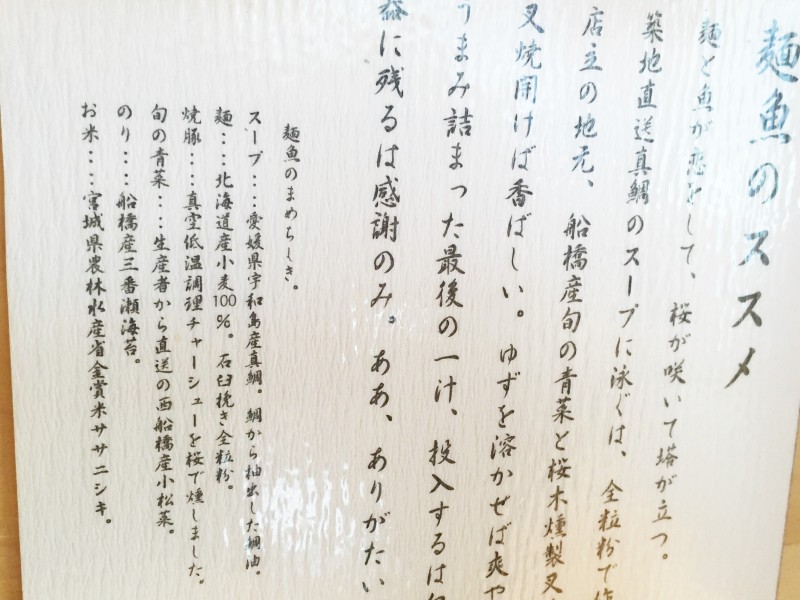 麺魚のススメ
麺と魚が恋をして、桜が咲いて塔が立つ。
築地直送真鯛のスープに泳ぐは、全粒粉で作
店主の地元、船橋産旬の青菜と桜木燻製叉
叉焼開けば香ばしい。ゆずを溶かせば爽や
うまみ詰まった最後の一汁、投入するは
器に残るは感謝のみ。ああ、ありがたい
麺魚のまめちしき。
スープ・・・愛媛県宇和島産真鯛。鯛から抽出した鯛油。
麺・・・北海道産小麦100%。石臼挽き全粒粉。
焼豚・・・真空低温調理チャーシューを桜で燻しました。
旬の青菜・・・生産者から直送の西船橋産小松菜。
のり・・・船橋産三番瀬海苔。
お米・・・宮城県農林水産省金賞米ササニシキ。